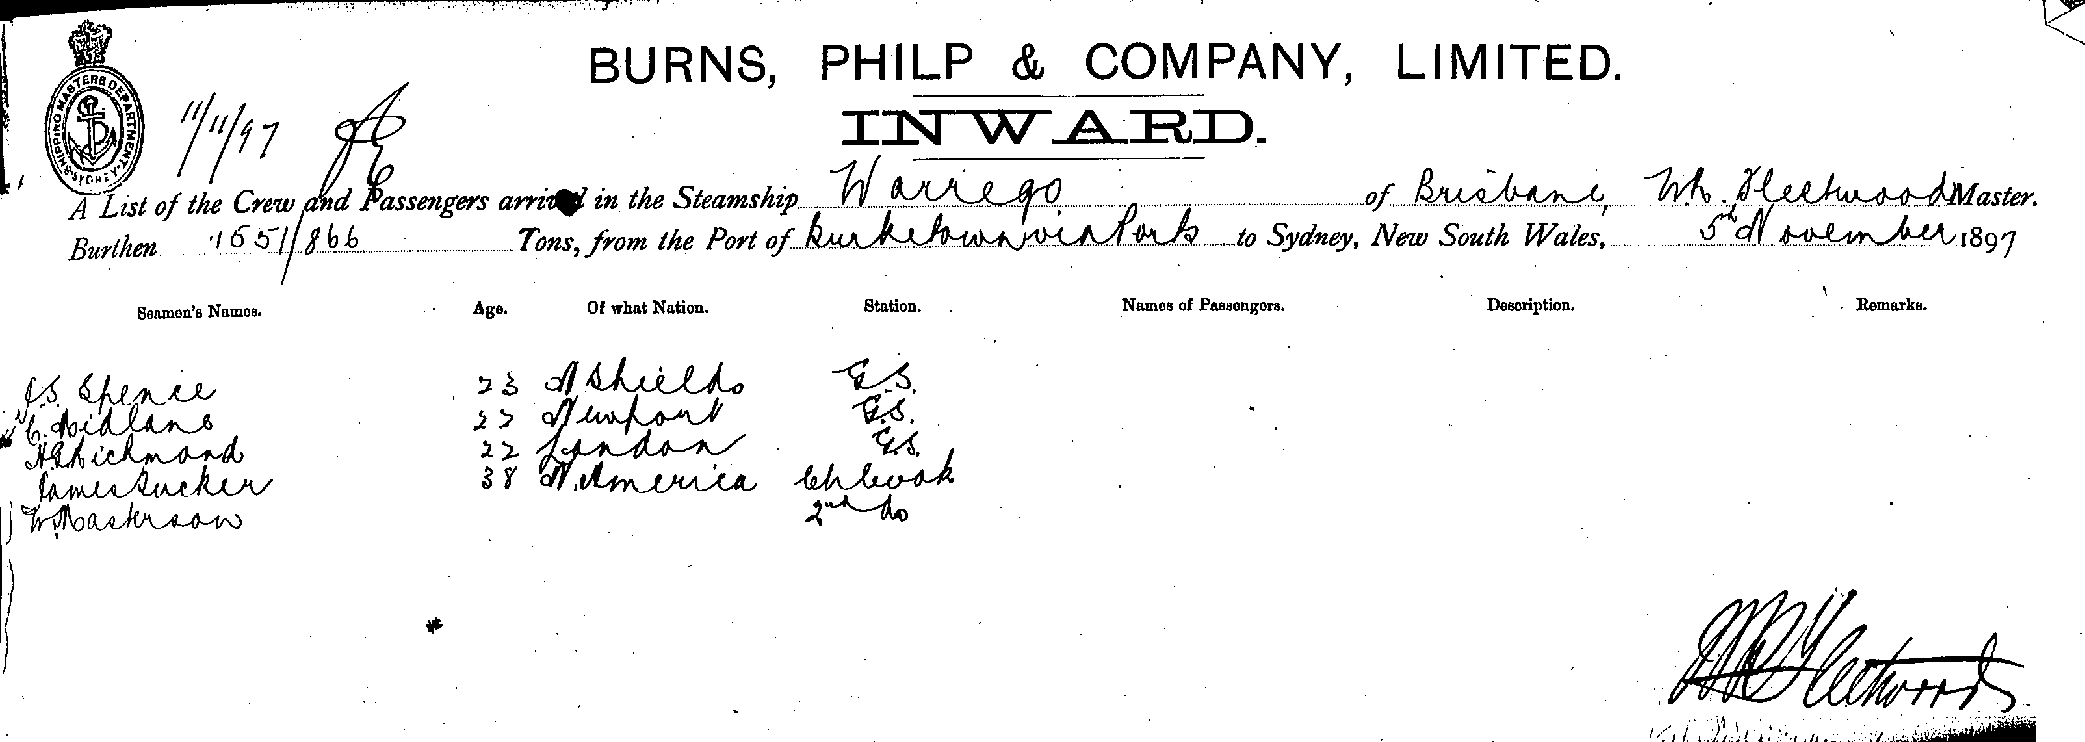 BURNS, PHILP & COMPANY, LIMITED.
INWARD.
SHIPPING MASTERS DEPARTMENT. SYDNEY.
11/11/97
A List of the Crew and Passengers arrived in the Steamship Warrego of Brisbane, Fleetwood Master.
Burthen 1651/866 Tons, from the Port of Burketown via Ports to Sydney, New South Wales, 5th November 1897
Seamen's Names. Age. Of what Nation. Station. Names of Passengers. Description. Remarks.
J.S. Spence 23 N Shields G.S.
C. Midlane Newport G.S.
Richmond 22 London G.S.
James Tucker 38 N. America Ch Cook
W. Masterson 2nd do
Fleetwood